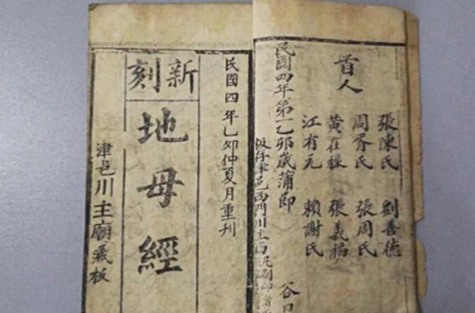 首人
張陳氏 劉善德
周胥氏 張周氏
黃在程 張義福
江有元 賴謝氏
民國四年第一乙卯歲蒲即
板存津邑西門川主
谷口
民國四年乙卯仲夏月重刊
新刻
地母經
津邑川主廟藏板